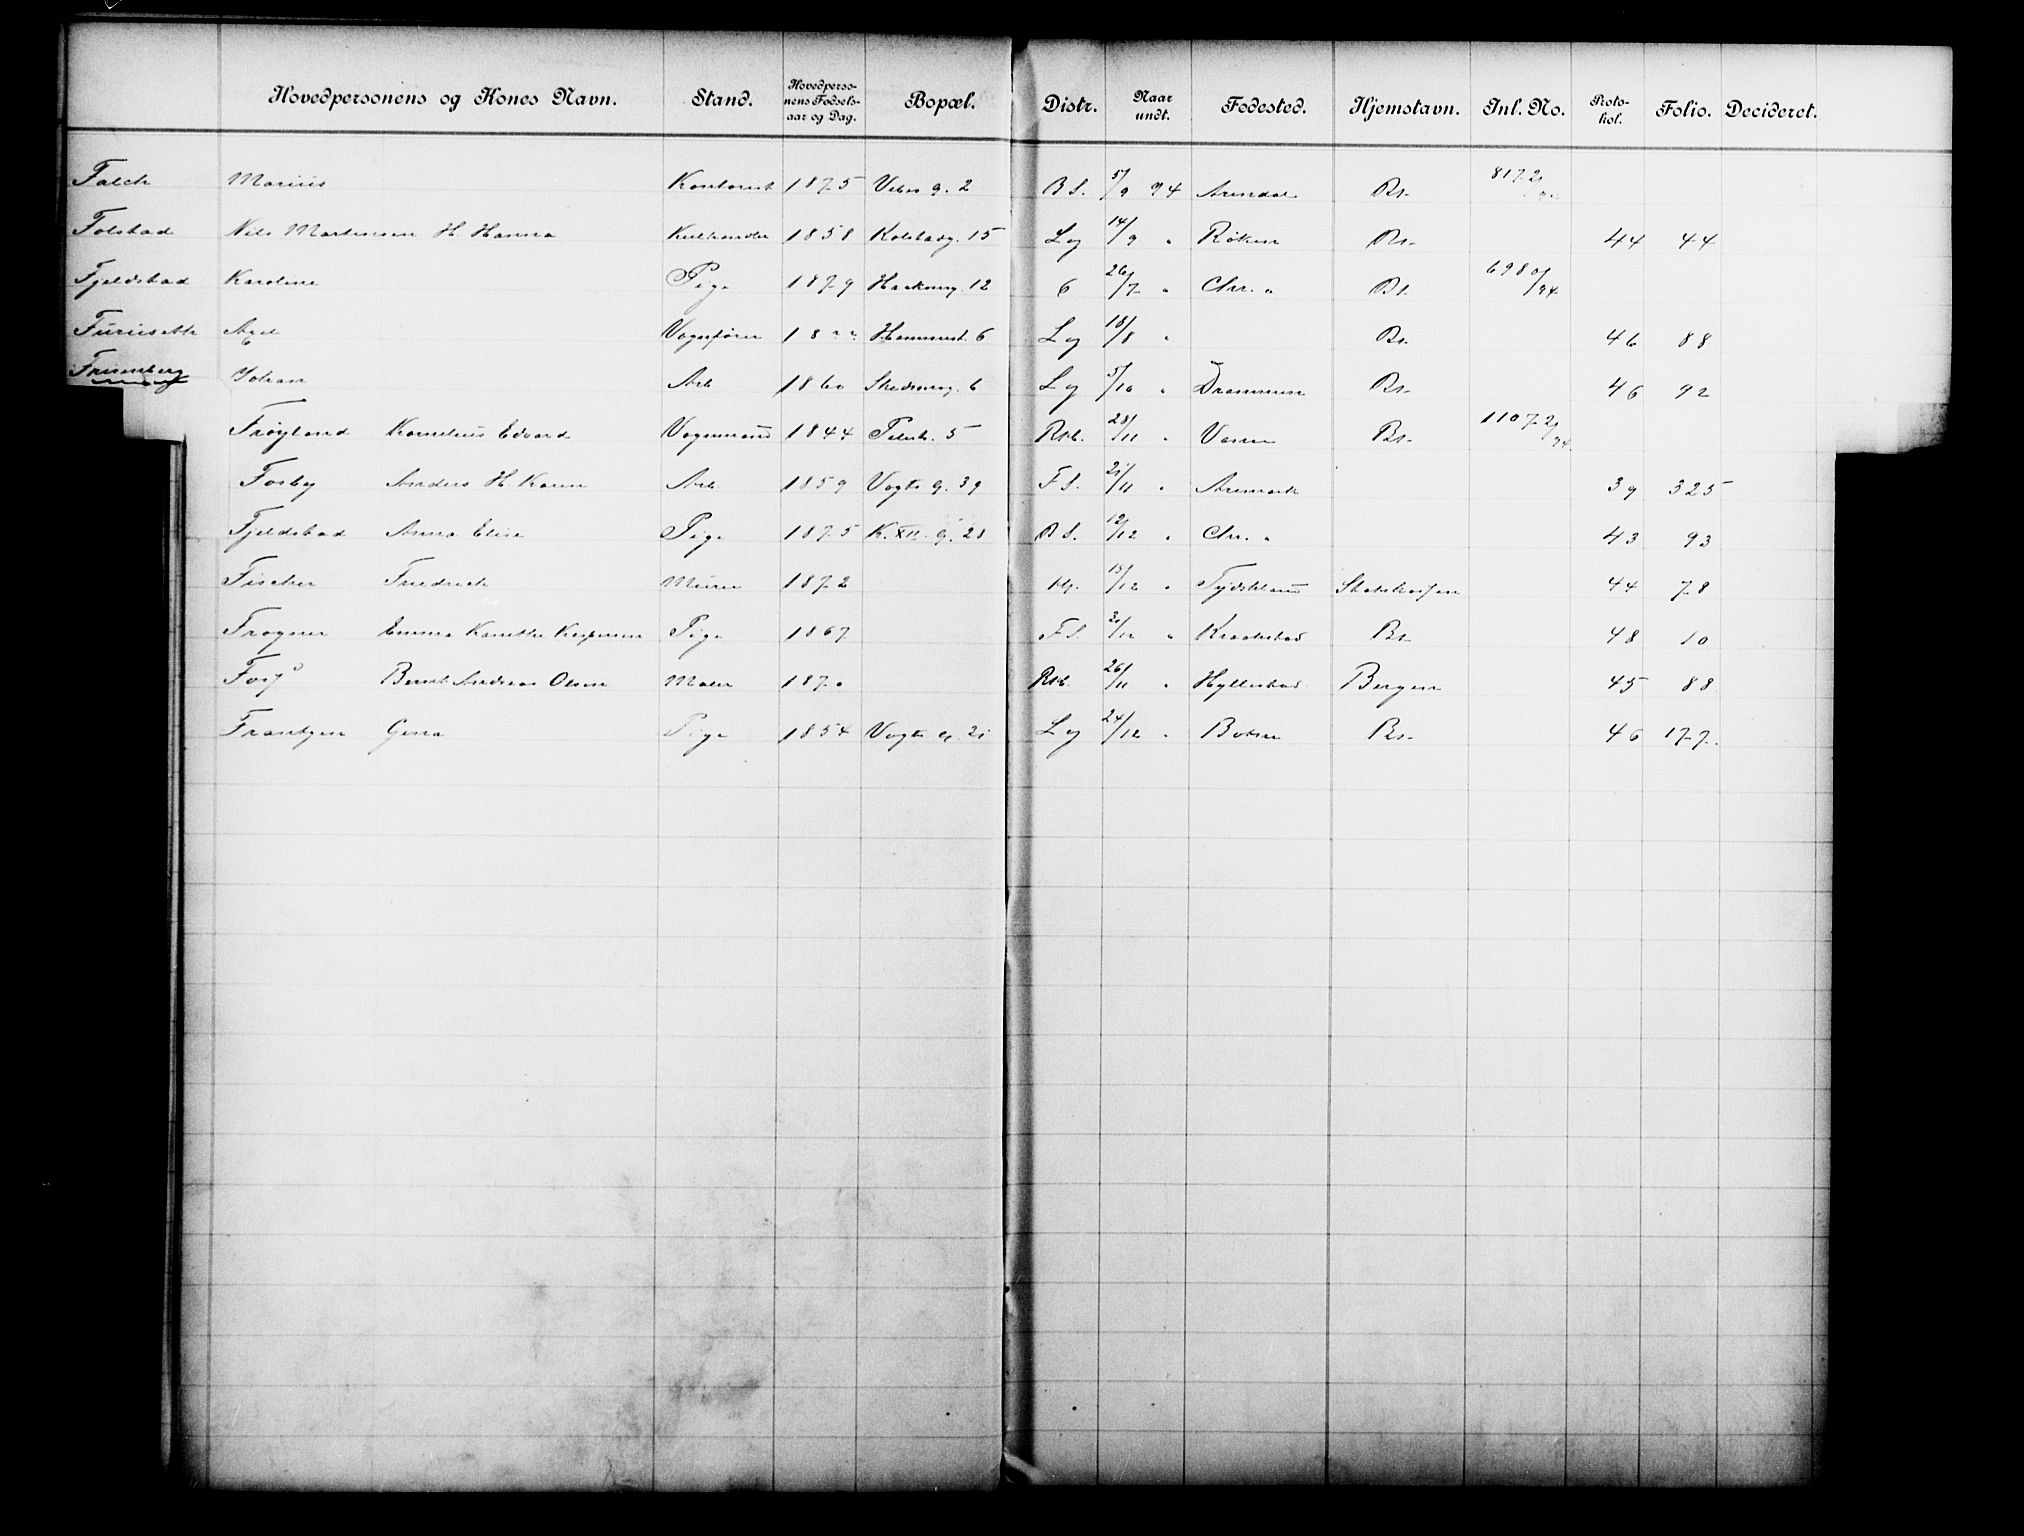 Hovedpersonens og Kones Navn. Stand. Hovedpersonens Fødselsaar og Dag. Bopæl. Distr. Naar undt. Fødested. Hjemstavn. Inl. No. Protokol. Folio. Decideret.
Falch Marius Kontorist 1875 Vibes g. 2 B S. 5/9 94 Arendal Bs. 8172/94
Folstad Nils Martinsen H. Hanna Kulhandler 1858 Kolstadg. 15 Lg 14/9 " Røken Bs. 44 44
Fjeldstad Karoline Pige 1879 Hackmg. 12 6 26/7 " Chr. a Bs. 6980/94
Furuseth Axel Vognfører 18"" Hammerst. 6 Lg 18/8 " Bs. 46 88
Frisenberg Johan Arb. 1860 Skedsmog. 6 Lg 5/10 " Drammen Bs. 46 92
Frøyland Kornelius Edvard Vognmand 1844 Pilestr. 5 Rst. 28/11 " Bs. 11072/94
Fosby Anders H. Karen Arb. 1859 Vogts g. 39 F S. 21/11 " Aremark 39 325
Fjeldstad Anna Elise Pige 1875 K. XII. g. 21 B S. 12/12 " Chr. a 43 93
Fischer Friedrich Murer 1872 15/12 " Tydskland 44 78
Frogner Emma Pige 1867 F S. 21/12 " Kraakstad Bs. 48 10
Foss Bernt Andreas Olsen Maler 1870 Rst. 26/11 " Hyllestad Bergen 45 88
Frantzen Gina Pige 1854 Vogts g. 21 Lg 24/12 " Botne Bs. 46 177.